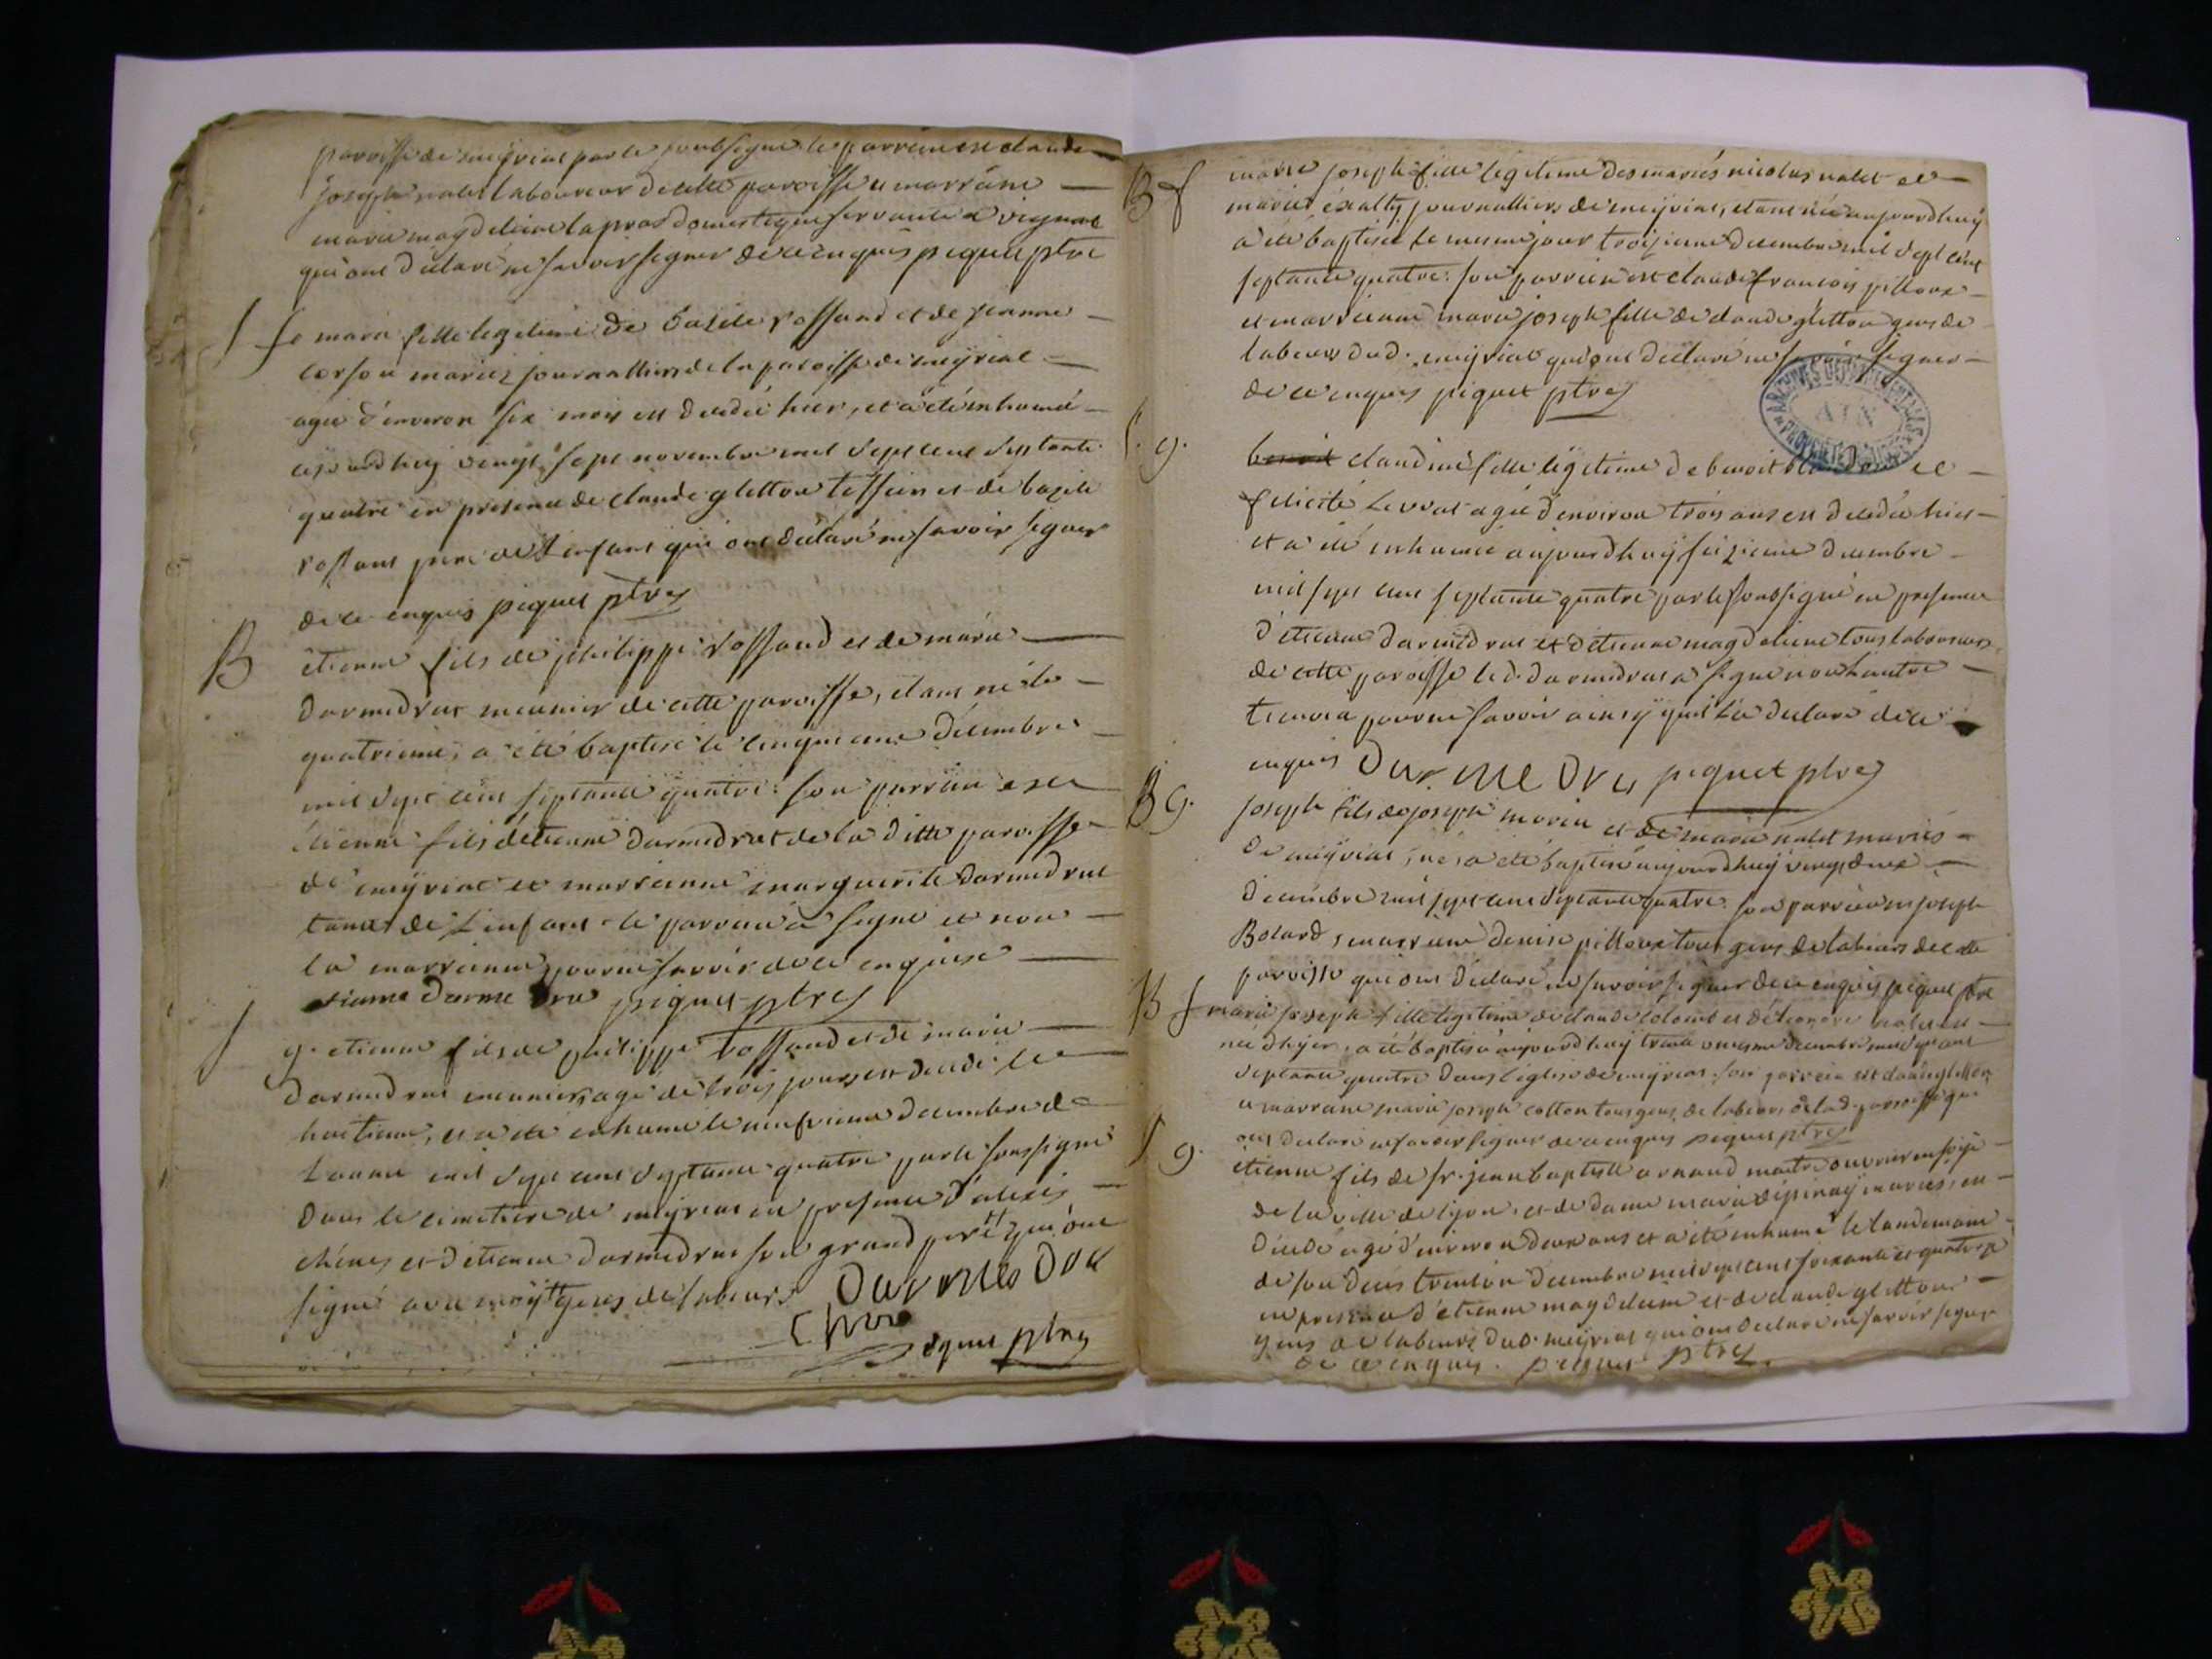 paroisse de meyriat par le soubsigné le parrein est claude
joseph nalet laboureur de cette paroisse et marraine
marie magdeleine la pras domestique servante a vignat
qui ont declaré ne savoir signer de ce enquis piquet ptre
S fe marie fille legitime de basile rossand et de jeanne
corson mariez journalliers de la paroisse de meyriat
agée d'environ six mois est decedée hier, et a été inhumé
aujourdhuy vingt sept novembre mil sept cent septante
quatre en presence de claude gletton tessien et de bazile
rossant pere de l'enfant qui ont declaré ne savoir signer
de ce enquis piquet ptre
B etienne fils de philippe rossand et de marie
darmedrut meunier de cette paroisse, etant né le
quatrieme, a été baptisé le cinquieme decembre
mil sept cent septante quatre: son parrein est
étienne fils d'étienne darmedrut de la ditte paroisse
de meyriat et marrienne marguerite darmedrut
tante de l'enfant le parrein a signé et non
la marrienne pour ne savoir de ce enquise
tienne darme dru piquet ptre
S g. etienne fils de philippe rossand et de marie
darmedrut meunier, agé de trois jours est decedé le
huitieme, et a été inhumé le neufvieme decembre de
l'anné mil sept cent septante quatre par le soussigné
dans le cimetiere de meyriat en presence d'alexis
chene et d'étienne darmedrut son grand pere qui ont
signé avec moy gens de labeurs Darme dru
Chene
piquet ptre
B f marie joseph fille legitime des mariés nicolas nalet et
marie éxaltÿ journalliers de meyriat, etant née aujourdhuy
a été baptisée le mesme jour troizieme decembre mil sept cent
septante quatre: son parrein est claude francois pilloux
et marrienne marie joseph fille de claude gletton gens de
labeurs dud. meyriat qui ont declaré ne savoir signer
de ce enquis piquet ptre
S. g. benoit claudine fille legitime de benoit et
felicité Levrat agée d'environ trois ans est decedée hier
et a été inhumée aujourdhuy seizieme decembre
mil sept cent septante quatre par le soussigné en presence
d'etienne darmedrut et d'etienne magdeleine tous laboureurs
de cette paroisse led. darmedrut a signé non l'autre
temoin pour ne savoir ainsy quil l'a declaré de ce
enquis Darme Dru piquet ptre
B g. joseph fils de joseph morin et de marie nalet mariés
de meyriat, né, a été baptisé aujourdhuy vingt deux
decembre mil sept cent septante quatre. son parrein est joseph
Bolard, marraine denise pilloux tous gens de labeurs de cette
paroisse qui ont declaré ne savoir signer de ce enquis piquet ptre
B f marie joseph fille legitime de claude colomb et d'éleonore nalet est
née dhyer, a été baptisée aujourdhuy trente unieme decembre mil sept cent
septante quatre dans l'église de meyriat. son parrein est claude gletton
et marraine marie joseph cotton tous gens de labeurs de lad. paroisse qui
ont declaré ne savoir signer de ce enquis piquet ptre
S g. etienne fils de sr. jean baptiste arnaud maitre ouvrier en soÿe
de la ville de lyon, et de dame marie dépinay mariés, est
décédé agé d'environ deux ans et a été inhumé le landemain
de son deces trente un decembre mil sept cent soixante et quatorze
en presence d'étienne magdeleine et de claude gletton
gens de labeurs dud. meyriat qui ont declaré ne savoir signer
de ce enquis. piquet ptre
ARCHIVES DEPARTEMENTALES
AIN
PROPRIETE PUBLIQUE